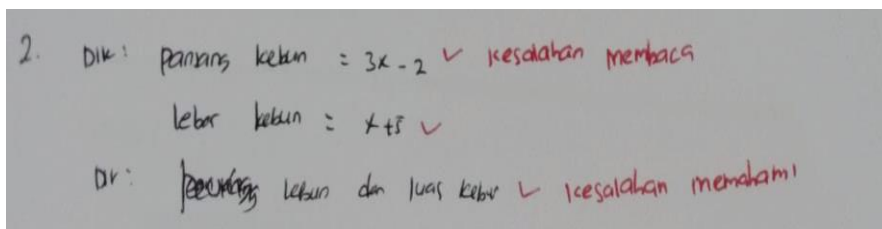 2. Dik: panjang kebun = 3x - 2 ✓ kesalahan membaca
lebar kebun = x+5 ✓
Dit: kebun dan luas kebun ✓ kesalahan memahami